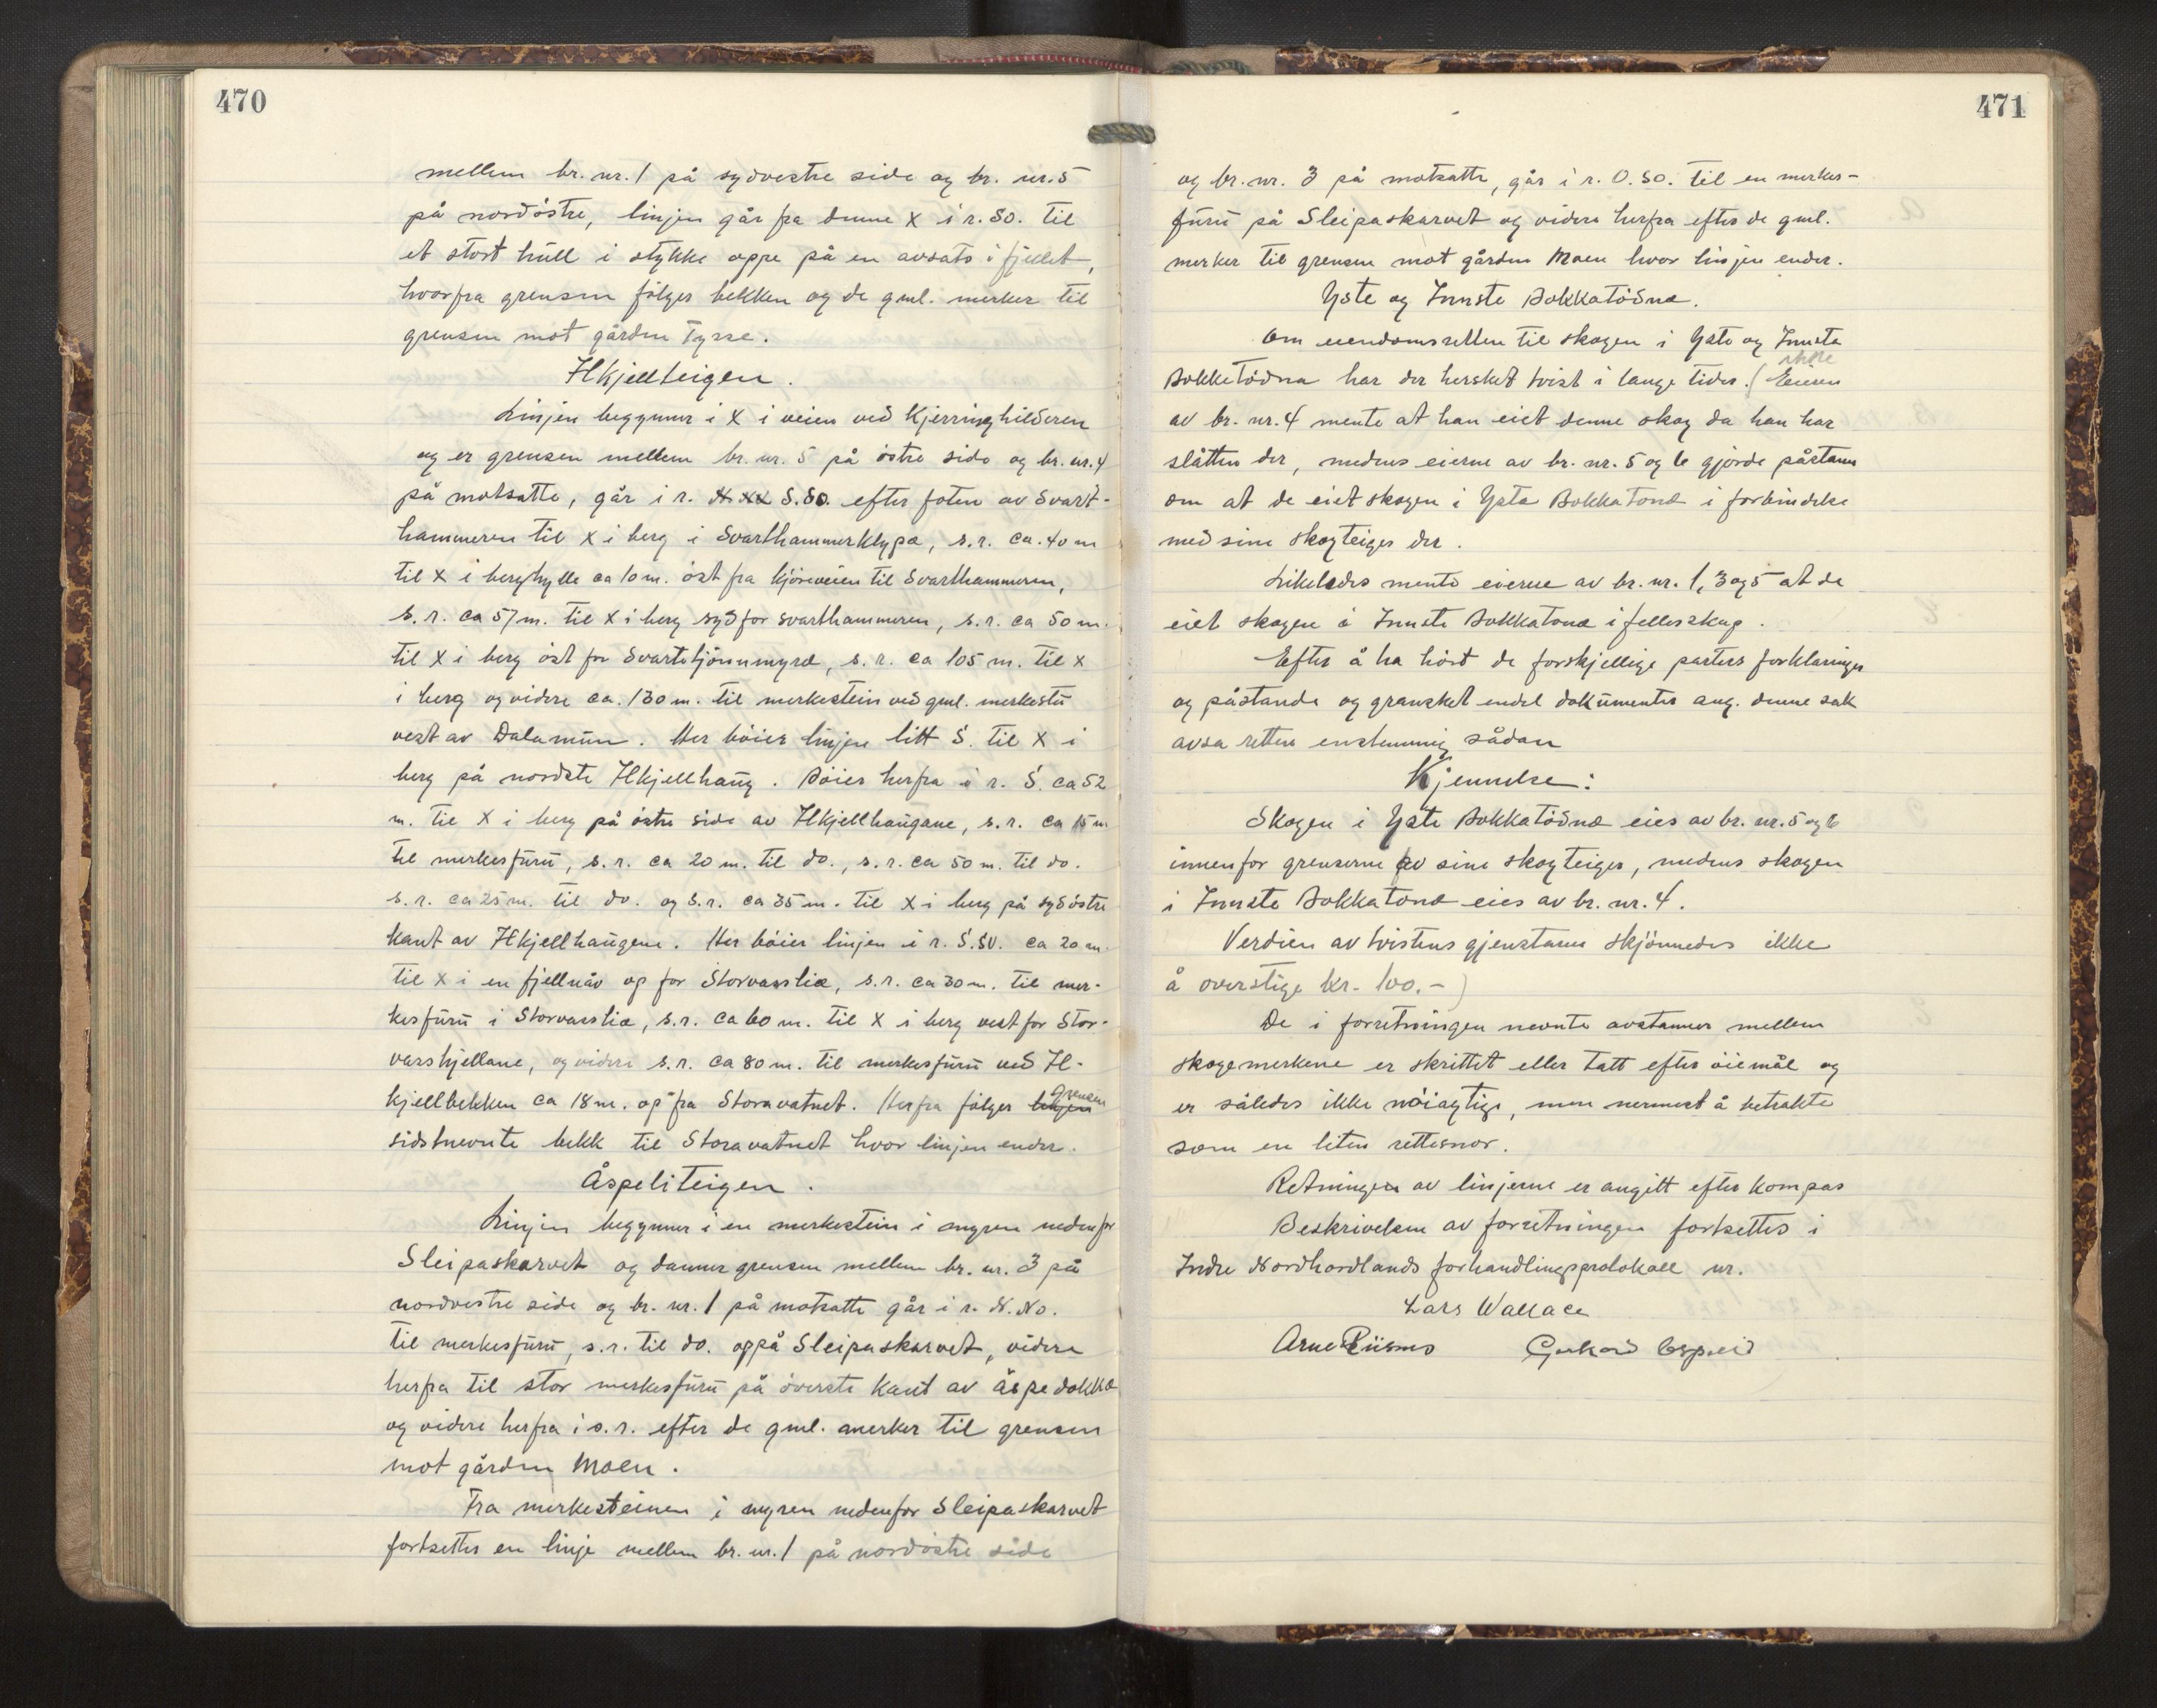 470
mellem br. nr. 1 på sydvestre side og br. nr. 5
på nordöstre, linjen går fra denne X i r. SO. til
et stort hull i stykke oppe på en avsats i fjellet,
hvorfra grensen fölger bekken og de gml. merker til
grensen mot gården Tysse.
Ilkjellteigen.
Linjen begynner i X i veien ved Kjerringhilderen
og er grensen mellem br. nr. 5 på östre side og br. nr. 4
på motsatte, går i r. S.SO. efter foten av Svart-
hammeren til X i berg i Svarthammerklypa, s.r. ca. 40 m
til X i berghylle ca 10 m. öst fra kjöreveien til Svarthammeren,
s.r. ca 57 m. til X i berg syd for Svarthammeren, s.r. ca 50 m.
til X i berg öst for Svartetjönnmyra, s.r. ca 105 m. til X
i berg og videre ca. 130 m. til merkestein ved gml. merkestu
vest av Dalamun. Her böier linjen litt S. til X i
berg på nordste Ilkjellhaug. Böier herfra i r. S. ca 52
m. til X i berg på östre side av Ilkjellhaugane, s.r. ca 15 m
til merkesfuru, s.r. ca 20 m. til do., s.r. ca 50 m. til do.
s.r. ca 25 m. til do. og s.r. ca 35 m. til X i berg på sydöstre
kant av Ilkjellhaugene. Her böier linjen i r. S.SV. ca 20 m.
til X i en fjellnåv op for Storvasslia, s.r. ca 30 m. til mer-
kesfuru i Storvasslia, s.r. ca 60 m. til X i berg vest for Stor-
varshjellane, og videre s.r. ca 80 m. til merkesfuru ved Il-
kjellbekken ca 18 m. op fra Storavatnet. Herfra fölger linjen Grensen
sidstnevnte bekk til Storavatnet hvor linjen ender.
Åspeliteigen.
Linjen begynner i en merkestein i myren nedenfor
Sleipaskarvet og danner grensen mellem br. nr. 3 på
nordvestre side og br. nr. 1 på motsatte går i r. N.NO.
til merkesfuru, s.r. til do. oppå Sleipaskarvet, videre
herfra til stor merkesfuru på överste kant av åspedokka
og videre herfra i s.r. efter de gml. merker til grensen
mot gården Moen.
Fra merkesteinen i myren nedenfor Sleipaskarvet
fortsettes en linje mellem br. nr. 1 på nordöstre side
471
og br. nr. 3 på motsatte, går i r. O.SO. til en merkes-
furu på Sleipaskarvet og videre herfra efter de gml.
merker til grensen mot gården Moen hvor linjen ender.
Yste og Innste Bokkatödna.
Om eiendomsretten til skogen i Yste og Innste
Bokketödna har der hersket tvist i lange tider. (Eieren
av br. nr. 4 mente at han eiet denne skog da han har
slåtten der, medens eierne av br. nr. 5 og 6 gjorde påstann
om at de eiet skogen i Ysta Bokkatona i forbindelse
med sine skogteiger der.
Likeledes mente eierne av br. nr. 1, 3 og 5 at de
eiet skogen i Innste Bokkatona i fellesskap.
Efter å ha hört de forskjellige parters forklaringer
og påstande og gransket endel dokumenter ang. denne sak
avsa retten enstemmig sådan
Kjennelse:
Skogen i Yste Bokkatödna eies av br. nr. 5 og 6
innenfor grenserne av sine skogteiger, medens skogen
i Innste Bokkatona eies av br. nr. 4.
Verdien av tvistens gjenstann skjönnedes ikke
å overstige kr. 100.-)
De i forretningen nevnte avstanner mellem
skogemerkene er skrittet eller tatt efter öiemål og
er således ikke nöiagtige, men nermest å betrakte
som en liten rettesnor.
Retningen av linjerne er angitt efter kompas
Beskrivelsen av forretningen fortsettes i
Indre Nordhordlands forhandlingsprotokoll nr.
Lars Wallace
Arne Riisnes Gerhard Espeid